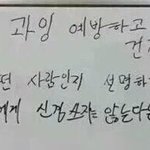 과잉 예방하고
건강
떤 사람인지 설명하
에게 신경 쓰지는 않는다는